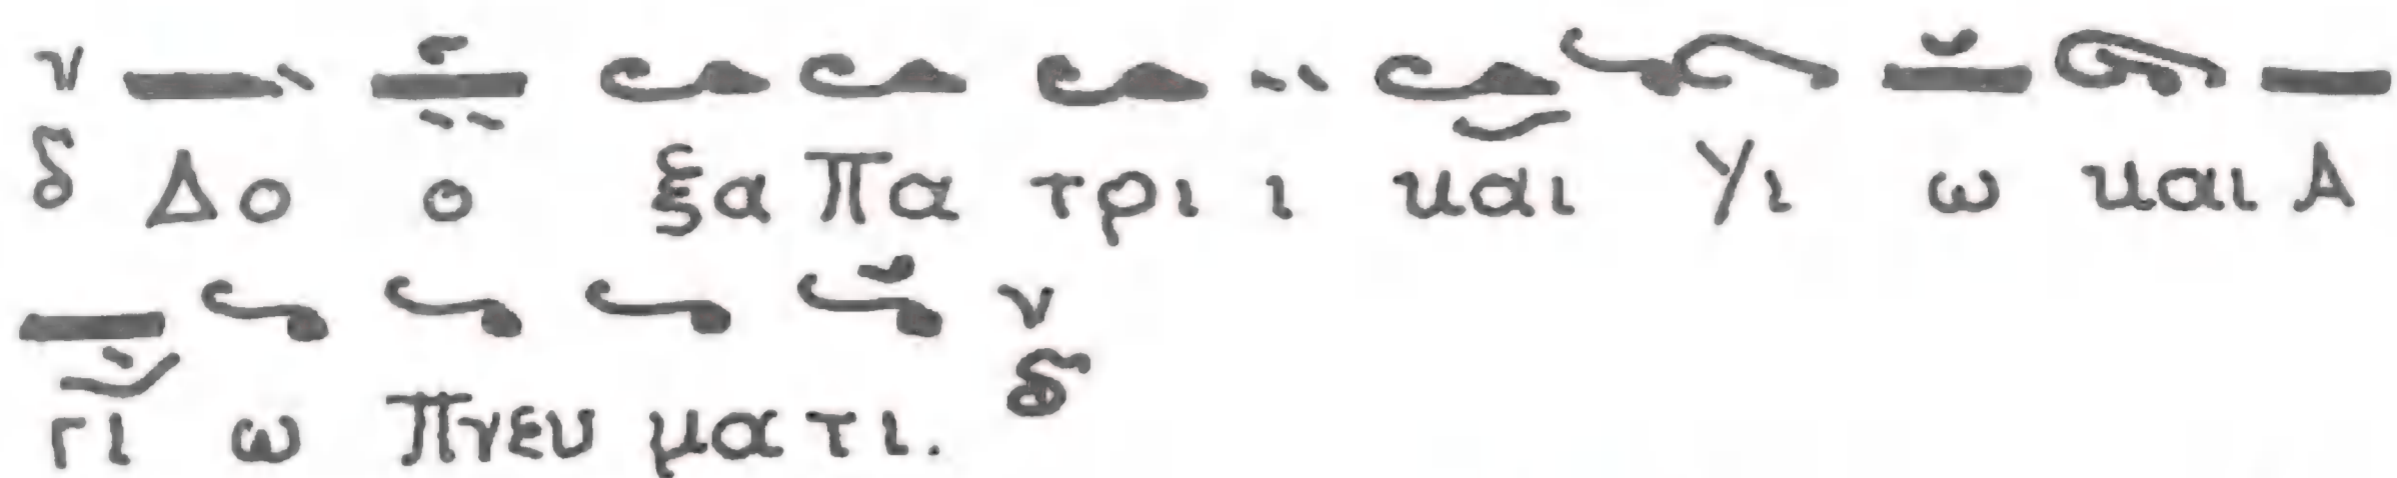 ν
δ Δο ο ξα Πα τρι ι και Υι ω και Α
ν
γι ω Πνευ μα τι. δ